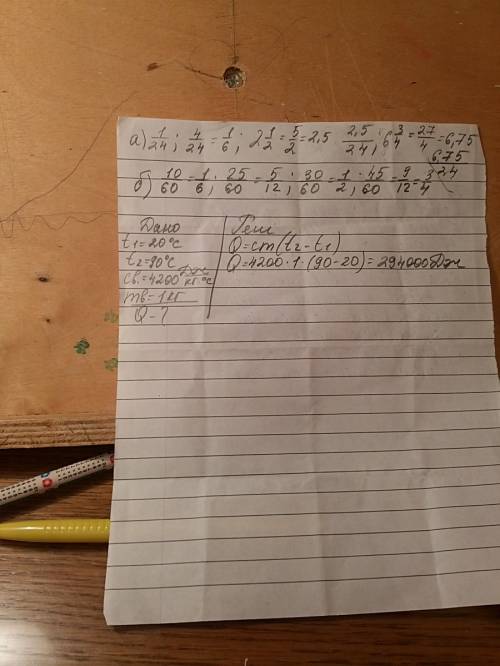 а) 1/24; 4/24 = 1/6; 2 1/2 = 5/2 = 2,5 2,5/24; 6 3/4 = 27/4 = 6,75
6,75/24
б) 10/60 = 1/6; 25/60 = 5/12; 30/60 = 1/2; 45/60 = 9/12 = 3/4
Дано
t1=20°C
t2=90°C
cв.=4200 Дж/кг·°C
mв=1кг
Q-?
Реш
Q=cm(t2-t1)
Q=4200·1·(90-20)=294000Дж